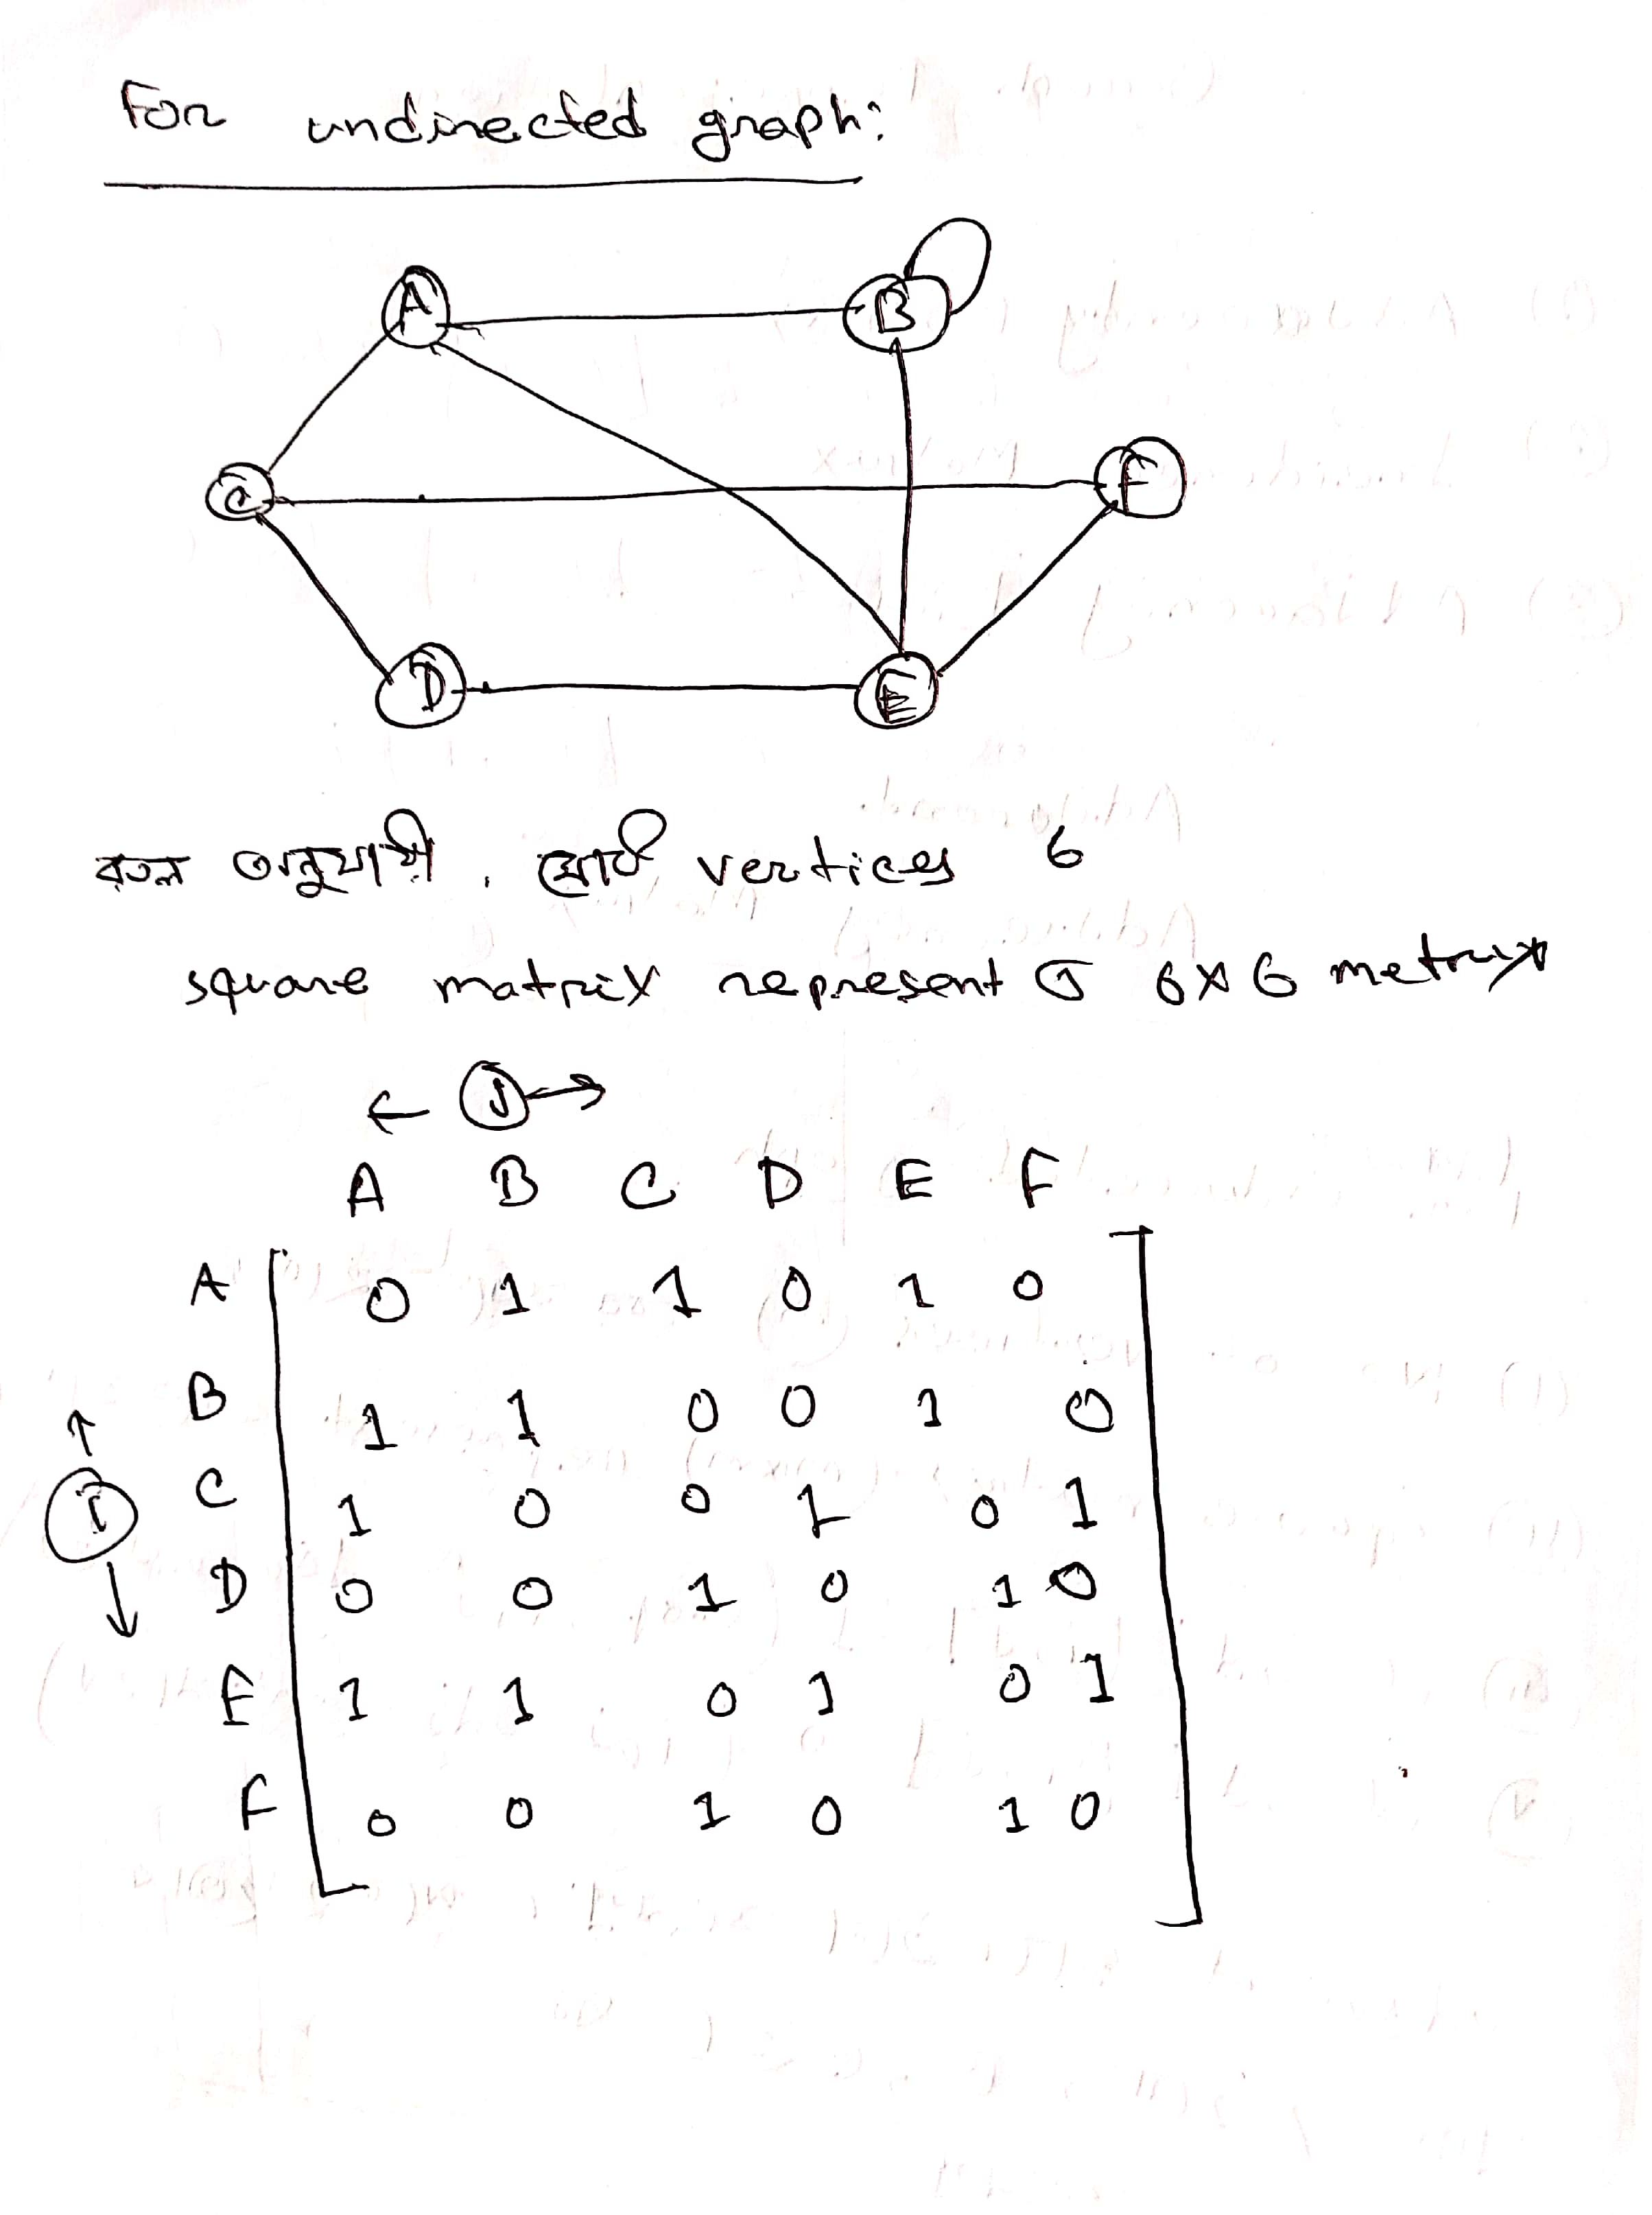 For undirected graph:
A B
C F
D E
রুল অনুযায়ী, মোট vertices 6
square matrix represent 6x6 metrix
← J →
A B C D E F
A 0 1 1 0 1 0
B 1 1 0 0 1 0
↑
I C 1 0 0 1 0 1
↓ D 0 0 1 0 1 0
E 1 1 0 1 0 1
F 0 0 1 0 1 0